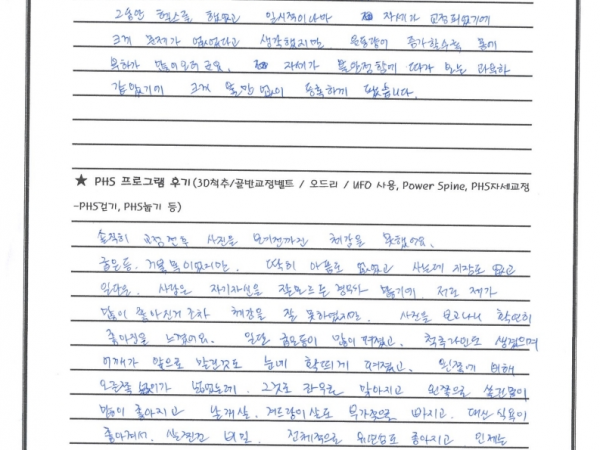 그동안 헬스를 했었고 일시적이나마 자세가 교정되었기에
크게 문제가 없었다고 생각했지만, 운동량이 증가할수록 몸에
무리가 많이오더군요. 자세가 불안정함에 따라 오는 과욕하
같았기에 크게 불만 없이 등록하게 됐습니다.
★ PHS 프로그램 후기(3D척추/골반교정벨트 / 오드리 / UFO 사용, Power Spine, PHS자세교정
-PHS걷기, PHS눕기 등)
솔직히 교정전후 사진을 보기전까진 체감을 못했어요.
굽은등, 거북목이었지만. 딱히 아픔도 없었고 사는데 지장도 없고
일단은. 사람은 자기자신을 잘모르는 경우가 많기에. 저도 제가
많이 좋아진거 조차 체감을 잘 못하였지만. 사진을 보고나니 확연히
좋아짐을 느꼈어요. 일단 굽은등이 많이 펴졌고. 척추라인도 생겼으며
어깨가 앞으로 말린것도 눈에 확띄게 펴졌고. 왼쪽에 비해
오른쪽 높이가 높았는데. 그것도 좌우로 맞아지고 왼쪽으로 쏠린몸이
많이 좋아지고 날개살. 겨드랑이살도 부가적으로 빠지고. 대신 식욕이
좋아져서. 살찐건 비밀. 전체적으로 외면상도 좋아지고 인제는